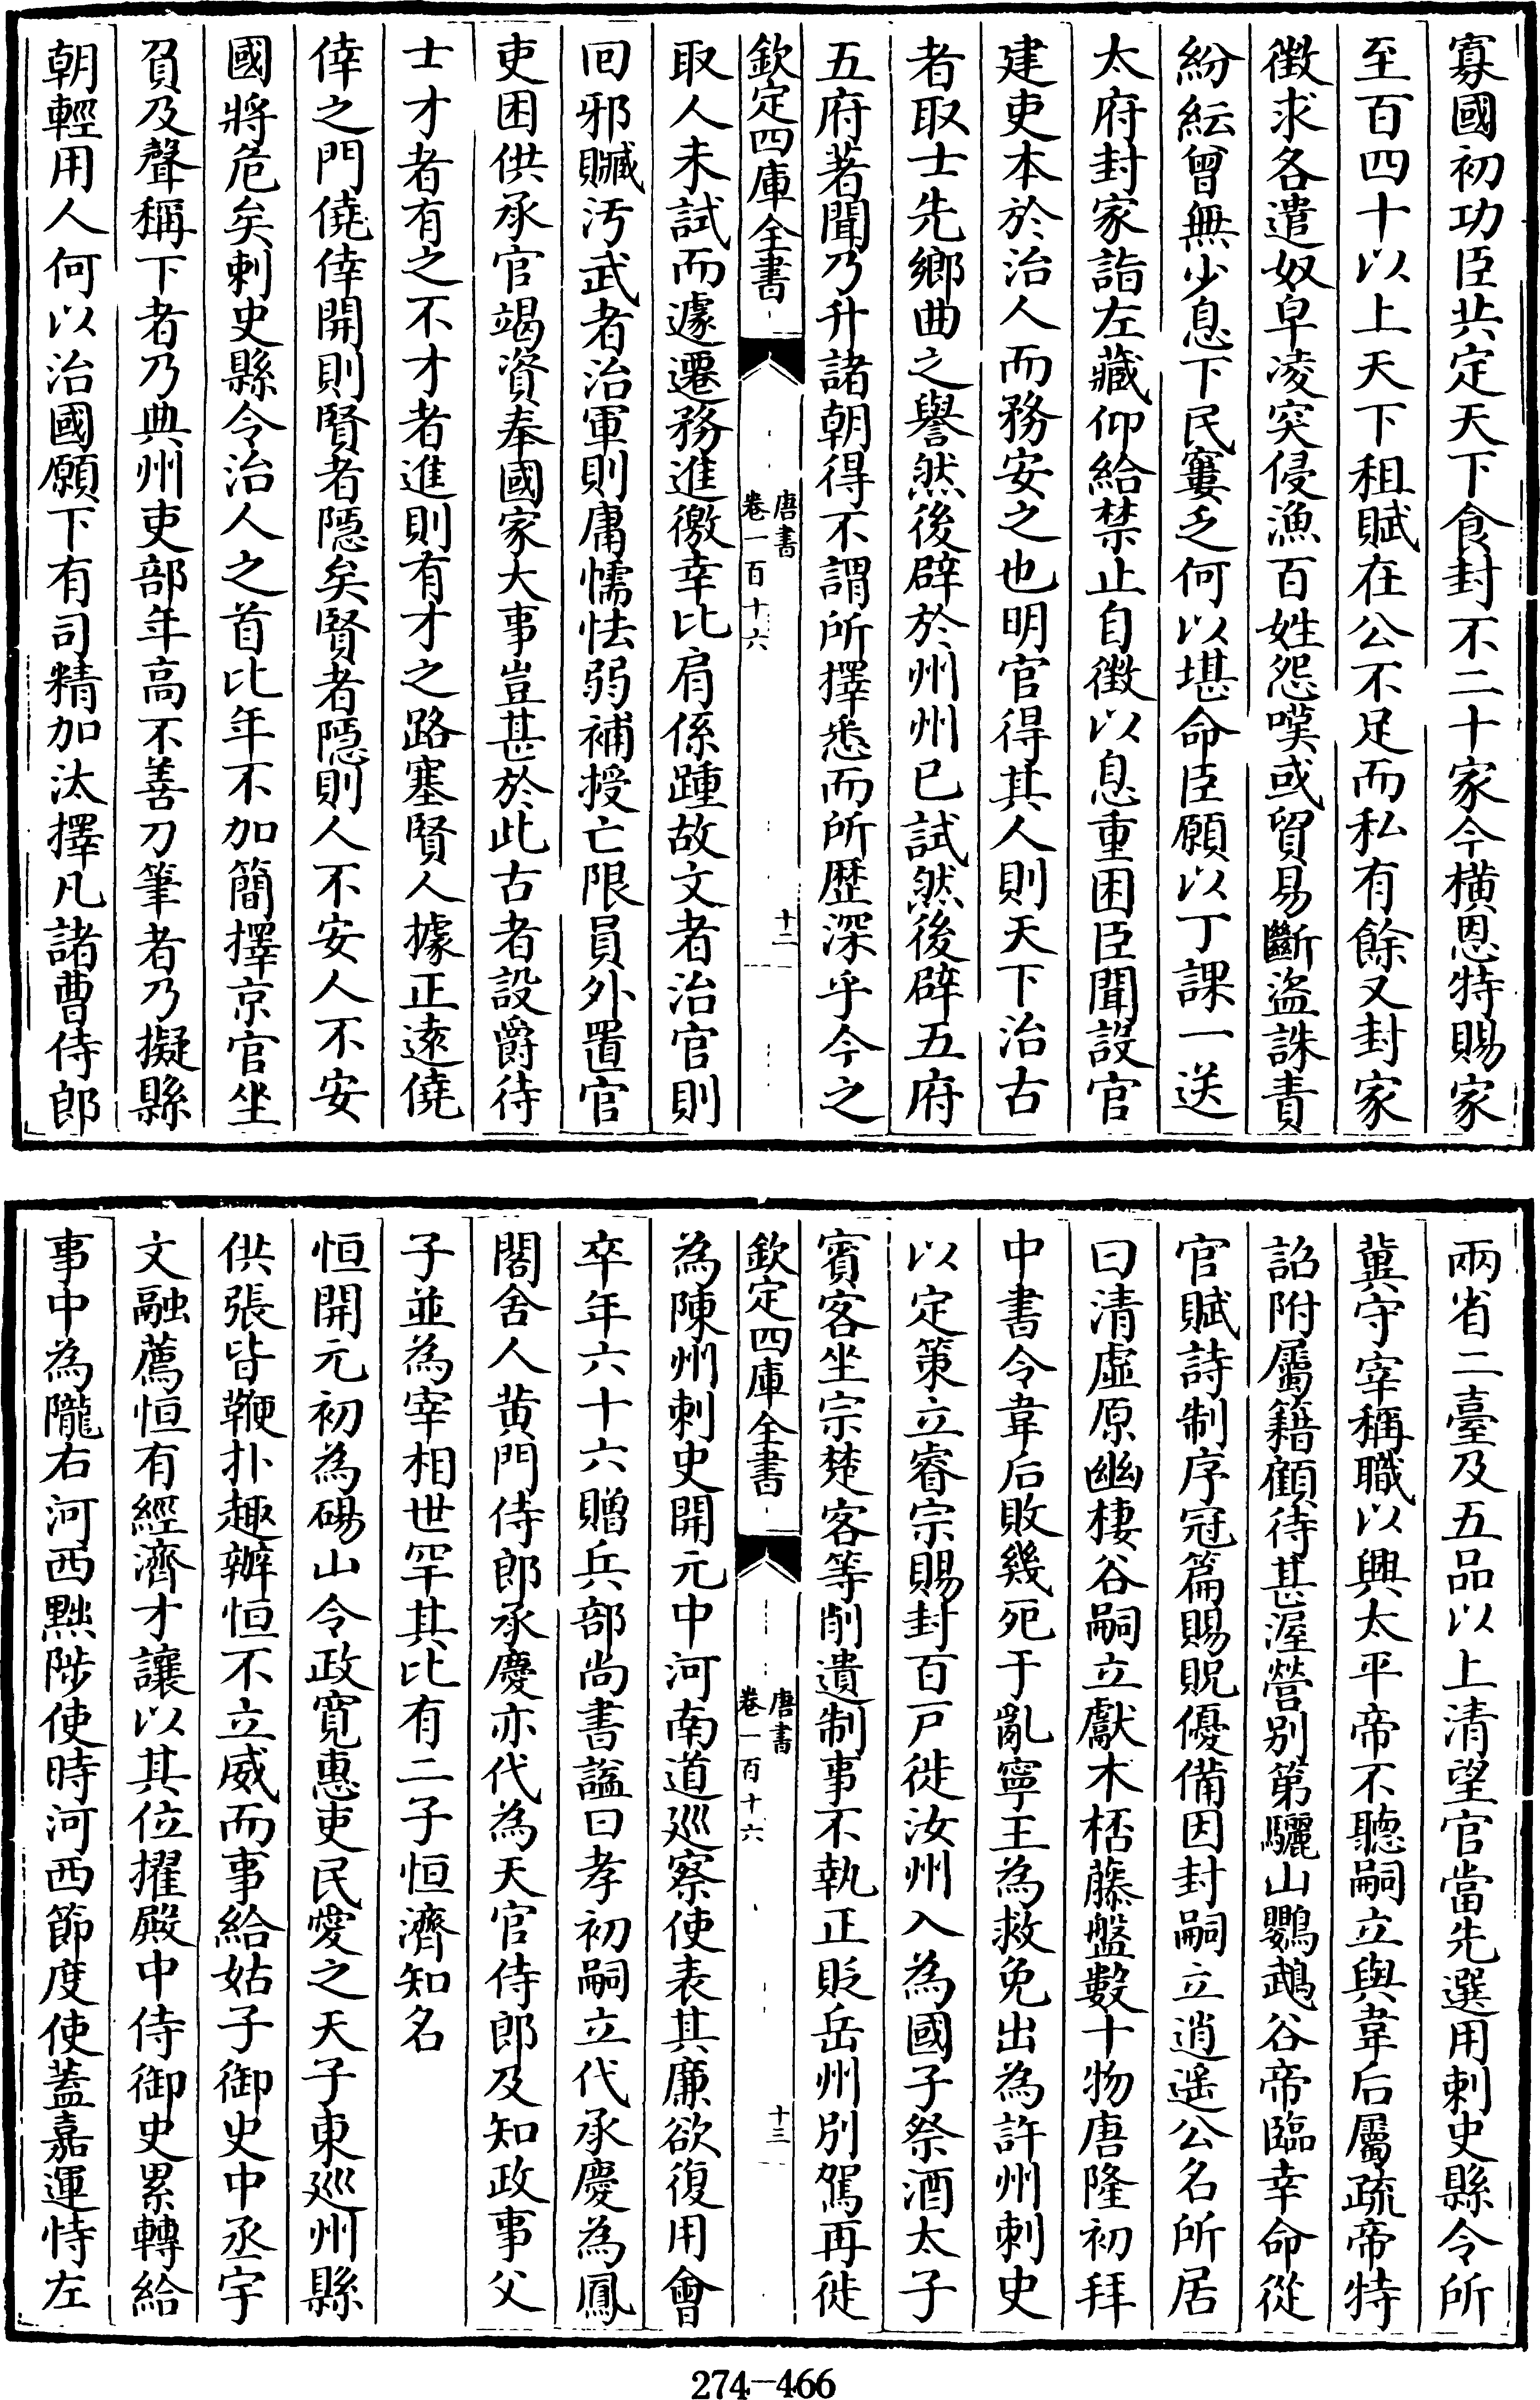 寡國初功臣共定天下食封不二十家今橫恩特賜家
至百四十以上天下租賦在公不足而私有餘又封家
徴求各遣奴皁凌突侵漁百姓怨嘆或貿易斷盜誅責
紛紜曾無少息下民窶乏何以堪命臣願以丁課一送
太府封家詣左藏仰給禁止自徴以息重困臣聞設官
建吏本於治人而務安之也明官得其人則天下治古
者取士先鄉曲之譽然後辟於州州已試然後辟五府
五府著聞乃升諸朝得不謂所擇悉而所歴深乎今之
欽定四庫全書
唐書
卷一百十六
十二
取人未試而遽遷務進徼幸比肩係踵故文者治官則
回邪贓汚武者治軍則庸懦怯弱補授亡限員外置官
吏困供承官竭資奉國家大事豈甚於此古者設爵待
士才者有之不才者進則有才之路塞賢人據正逺僥
倖之門僥倖開則賢者隱矣賢者隱則人不安人不安
國將危矣刺史縣令治人之首比年不加簡擇京官坐
負及聲稱下者乃典州吏部年高不善刀筆者乃擬縣
朝輕用人何以治國願下有司精加汰擇凡諸曹侍郎
兩省二臺及五品以上清望官當先選用刺史縣令所
冀守宰稱職以興太平帝不聽嗣立與韋后屬疏帝特
詔附屬籍顧待甚渥營別第驪山鸚鵡谷帝臨幸命從
官賦詩制序冠篇賜貺優備因封嗣立逍遥公名所居
曰清虛原幽棲谷嗣立獻木桮藤盤數十物唐隆初拜
中書令韋后敗幾死于亂寧王為救免出為許州刺史
以定策立睿宗賜封百戸徙汝州入為國子祭酒太子
賓客坐宗楚客等削遺制事不執正貶岳州別駕再徙
欽定四庫全書
唐書
卷一百十六
十三
為陳州刺史開元中河南道巡察使表其廉欲復用會
卒年六十六贈兵部尚書諡曰孝初嗣立代承慶為鳳
閣舍人黄門侍郎承慶亦代為天官侍郎及知政事父
子並為宰相世罕其比有二子恒濟知名
恒開元初為碭山令政寛惠吏民愛之天子東巡州縣
供張皆鞭扑趣辦恒不立威而事給姑子御史中丞宇
文融薦恒有經濟才讓以其位擢殿中侍御史累轉給
事中為隴右河西黜陟使時河西節度使蓋嘉運恃左
274-466